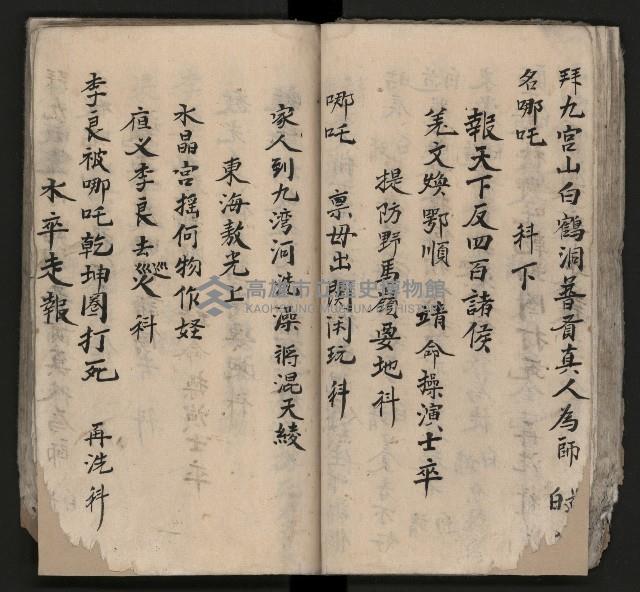 拜九宮山白鶴洞普賢真人為師
名哪吒 科下
報天下反四百諸侯
羌文煥鄂順 靖命操演士卒
提防野馬嶺要地科
哪吒 禀毋出関闲玩科
家人到九湾河洗澡將混天綾
東海敖光上
水晶宮搖何物作妖
夜义李良去巡科
李良被哪吒乾坤圈打死 再洗科
水卒走報
高雄市立歷史博物館
KAOHSIUNG MUSEUM OF HISTORY